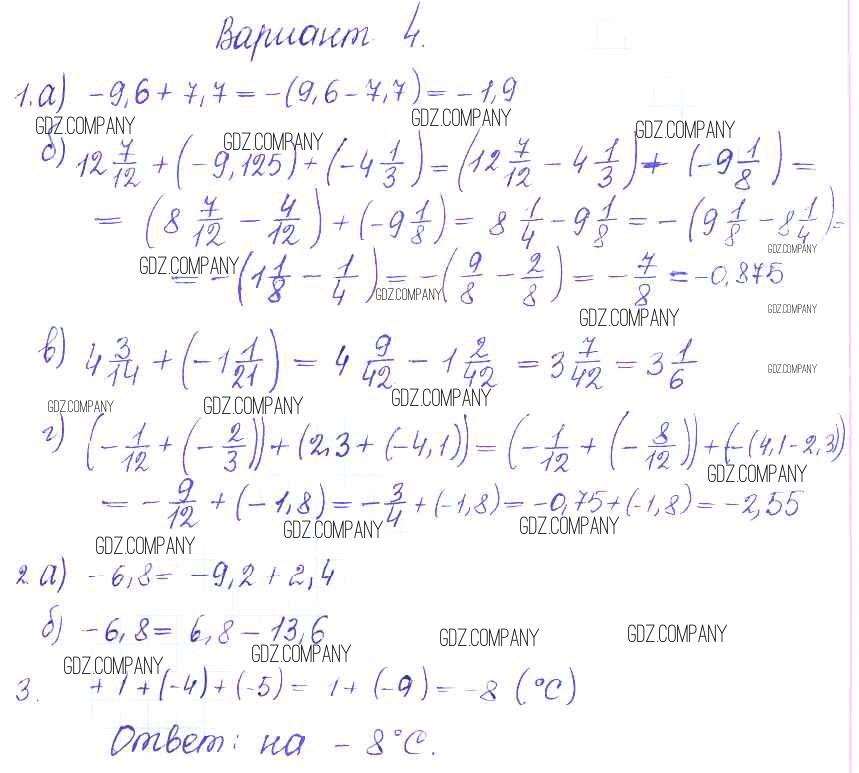 Вариант 4.
1. а) -9,6 + 7,7 = -(9,6 - 7,7) = -1,9
GDZ.COMPANY GDZ.COMPANY
GDZ.COMPANY GDZ.COMPANY
б) 12 7/12 + (-9,125) + (-4 1/3) = (12 7/12 - 4 1/3) + (-9 1/8) =
= (8 7/12 - 4/12) + (-9 1/8) = 8 1/4 - 9 1/8 = -(9 1/8 - 8 1/4) =
GDZ.COMPANY GDZ.COMPANY
= -(1 1/8 - 1/4) = -(9/8 - 2/8) = -7/8 = -0,875
GDZ.COMPANY GDZ.COMPANY GDZ.COMPANY
в) 4 3/14 + (-1 1/21) = 4 9/42 - 1 2/42 = 3 7/42 = 3 1/6
GDZ.COMPANY
GDZ.COMPANY GDZ.COMPANY GDZ.COMPANY
г) (-1/12 + (-2/3)) + (2,3 + (-4,1)) = (-1/12 + (-8/12)) + (-(4,1 - 2,3))
GDZ.COMPANY
= -9/12 + (-1,8) = -3/4 + (-1,8) = -0,75 + (-1,8) = -2,55
GDZ.COMPANY GDZ.COMPANY GDZ.COMPANY
2. а) -6,8 = -9,2 + 2,4
б) -6,8 = 6,8 - 13,6
GDZ.COMPANY GDZ.COMPANY GDZ.COMPANY GDZ.COMPANY
3. +1 + (-4) + (-5) = 1 + (-9) = -8 (°C)
Ответ: на -8°C.